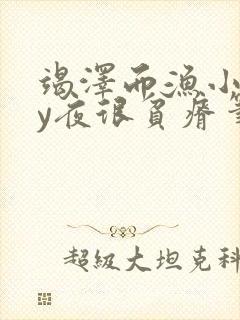 竭澤而漁小
y夜很負瘠筆
超級大坦克科